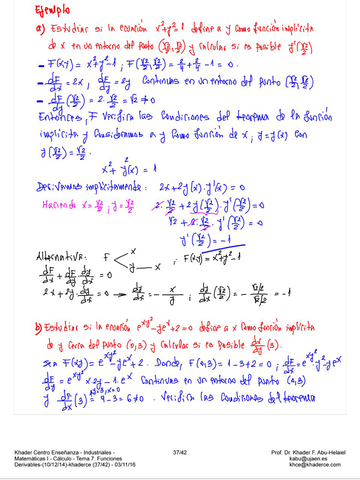 Ejemplo
a) Estudiar si la ecuación x²+y²=1 define a y como función implícita
de x en un entorno del punto (√2/2, √2/2) y calcular si es posible y'(√2/2)
- F(x,y) = x²+y²-1 ; F(√2/2, √2/2) = 2/4 + 2/4 - 1 = 0.
- dF/dx = 2x, dF/dy = 2y Continuas en un entorno del punto (√2/2, √2/2)
- dF/dy (√2/2) = 2·√2/2 = √2 ≠ 0
Entonces, F verifica las condiciones del teorema de la función
implícita y consideramos a y como función de x, y=y(x) con
y(√2/2) = √2/2.
x² + y²(x) = 1
Derivamos implícitamente: 2x+2y(x)·y'(x) = 0
Haciendo x=√2/2, y=√2/2 2·√2/2 + 2y(√2/2)·y'(√2/2) = 0
√2 + 2·√2/2·y'(√2/2) = 0
y'(√2/2) = -1
Alternativa: F < x y — x ; F(x,y) = x²+y²-1
dF/dx + dF/dy dy/dx = 0
2x+2y·dy/dx = 0 → dy/dx = -x/y ; dy/dx (√2/2) = - √2/2 / √2/2 = -1
b) Estudiar si la ecuación e^xy² - ye^x + 2 = 0 define a x como función implícita
de y cerca del punto (0,3) y calcular si es posible dx/dy (3).
Sea F(x,y) = e^xy² - ye^x + 2. Donde, F(0,3) = 1-3+2 = 0 ; dF/dx = e^xy²·y² - ye^x
dF/dy = e^xy²·x2y - 1·e^x Continuas en un entorno del punto (0,3)
y dF/dx (3) = 9-3 = 6 ≠ 0. Verifica las condiciones del teorema
Khader Centro Enseñanza - Industriales -
Matemáticas I - Cálculo - Tema 7. Funciones
Derivables-(10/12/14)-khaderce (37/42) - 03/11/16
37/42
Prof. Dr. Khader F. Abu-Helaiel
kabu@ujaen.es
khce@khaderce.com